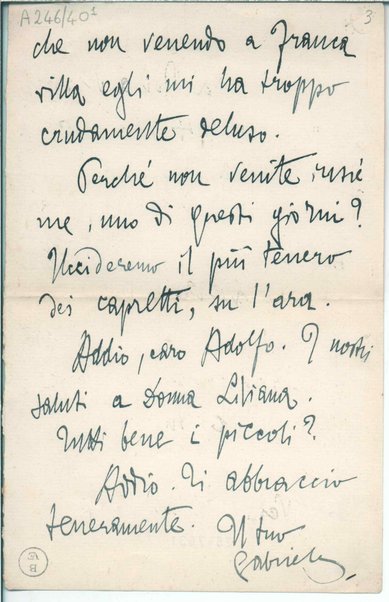 A 246/40¹
3
che non venendo a Franca
villa egli mi ha troppo
crudamente deluso.
Perché non venite, insie
me, uno di questi giorni?
Uccideremo il più tenero
dei capretti, su l'ara.
Addio, caro Adolfo. I nostri
saluti a Donna Liliana.
Tutti bene i piccoli?
Addio. Ti abbraccio
teneramente. Il tuo
Gabriele